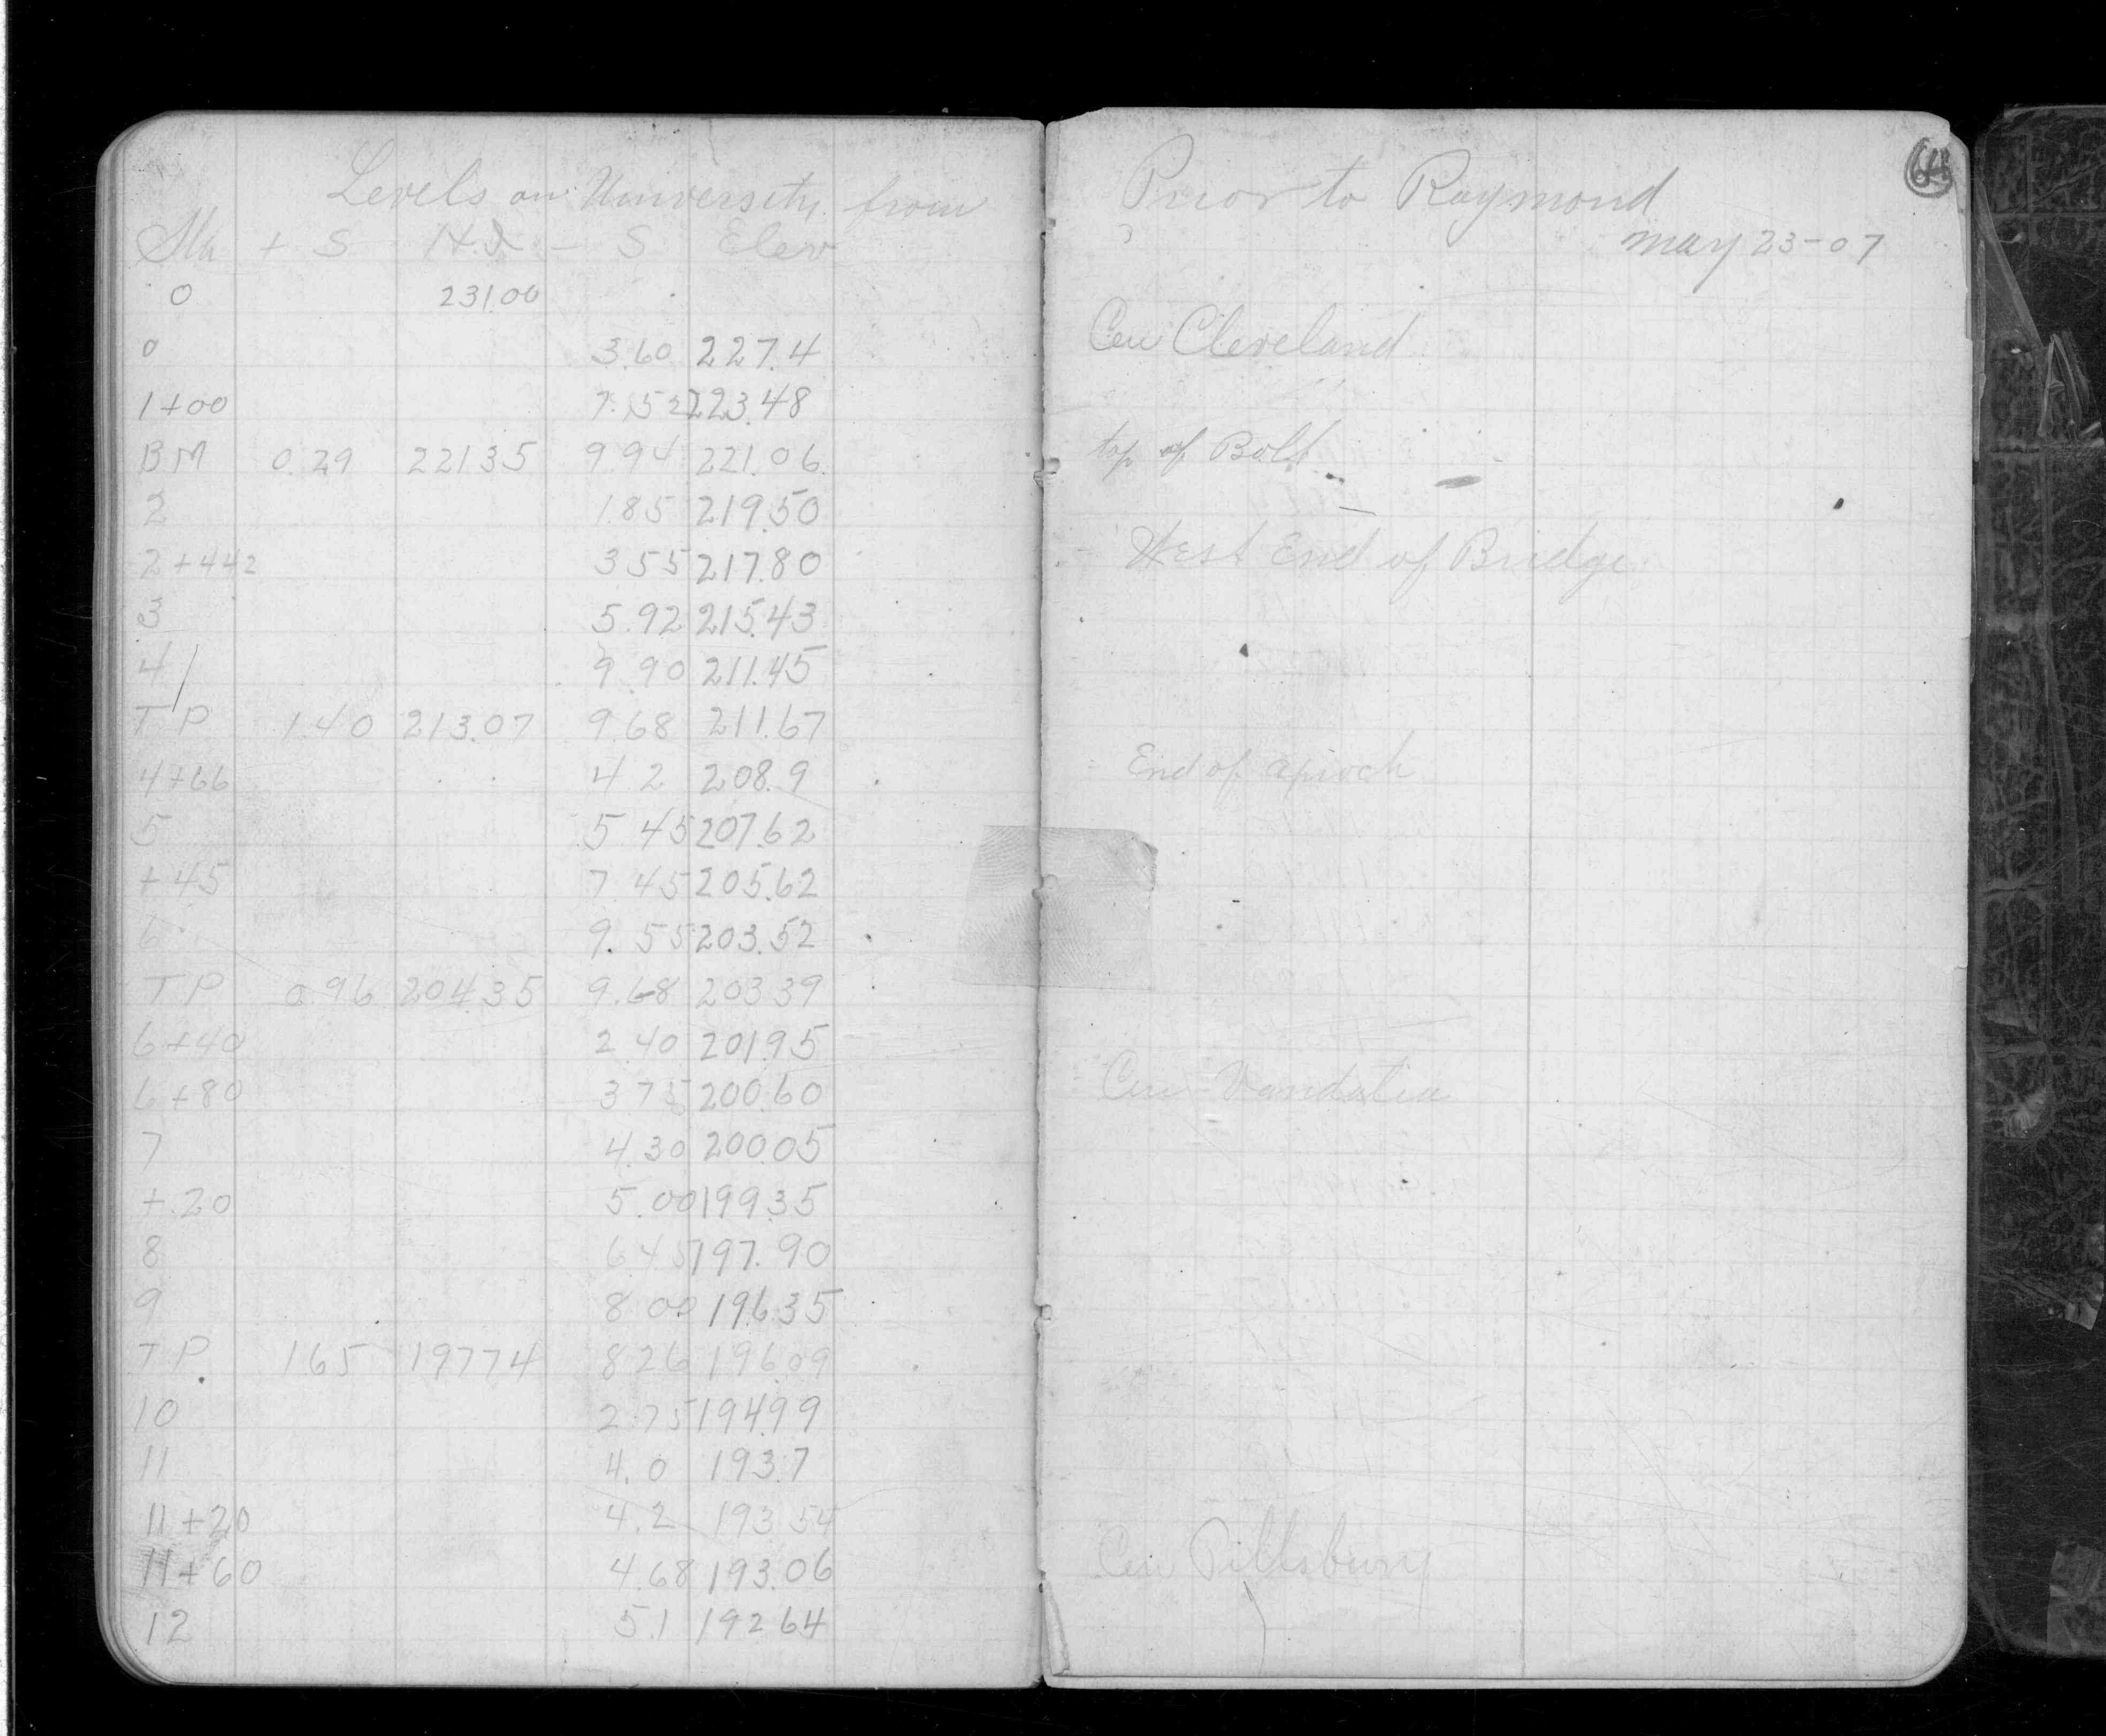 Levels on University from
Sta + S H.I. - S Elev
0 231.00
0 3.60 227.4
1+00 7.52 223.48
BM 0.29 221 35 9.94 221.06.
2 1.85 219.50
2+442 3 55 217.80
3 5.92 215.43
4 9.90 211.45
T P 1.40 213.07 9.68 211.67
4+66 4 2 208.9
5 5 45 207.62
+45 7 45 205.62
6 9.55 203.52
T.P 0.96 204.35 9.68 203 39
6+40 2.40 201.95
6+80 3 75 200.60
7 4.30 200.05
+.20 5.00 199.35
8 6.45 197.90
9 8 00 196.35
T P. 1 65 197 74 8 26 196.09
10 2.75 194.99
11 4.0 193.7
11+20 4.2 193 54
11+60 4.68 193.06
12 5.1 192 64
Prior to Raymond
May 23-07
Cen Cleveland
top of Bolt
West End of Bridge
End of aproch
Cen Vandalia
Cen Pillsbury